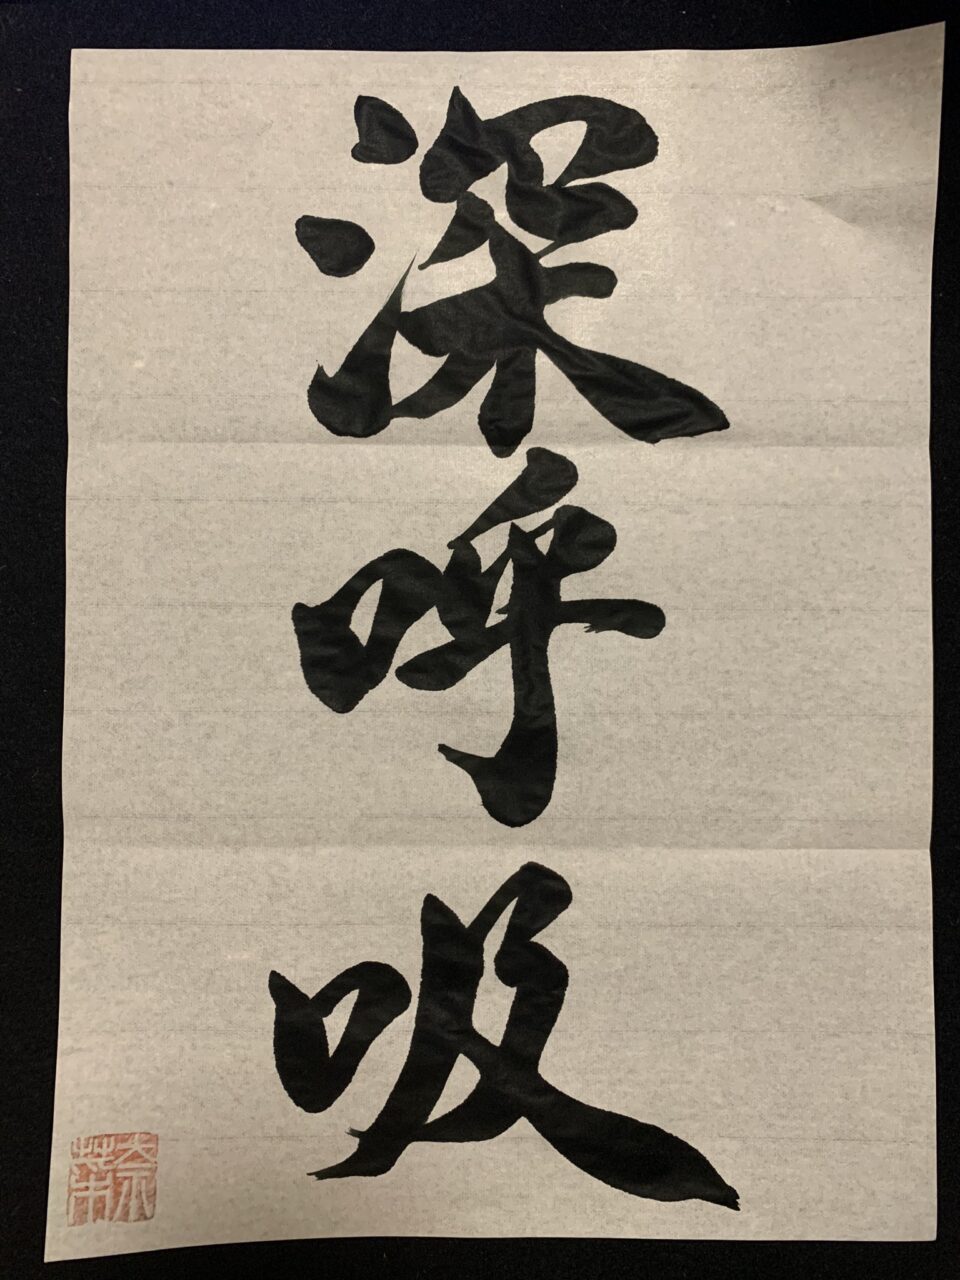 深呼吸